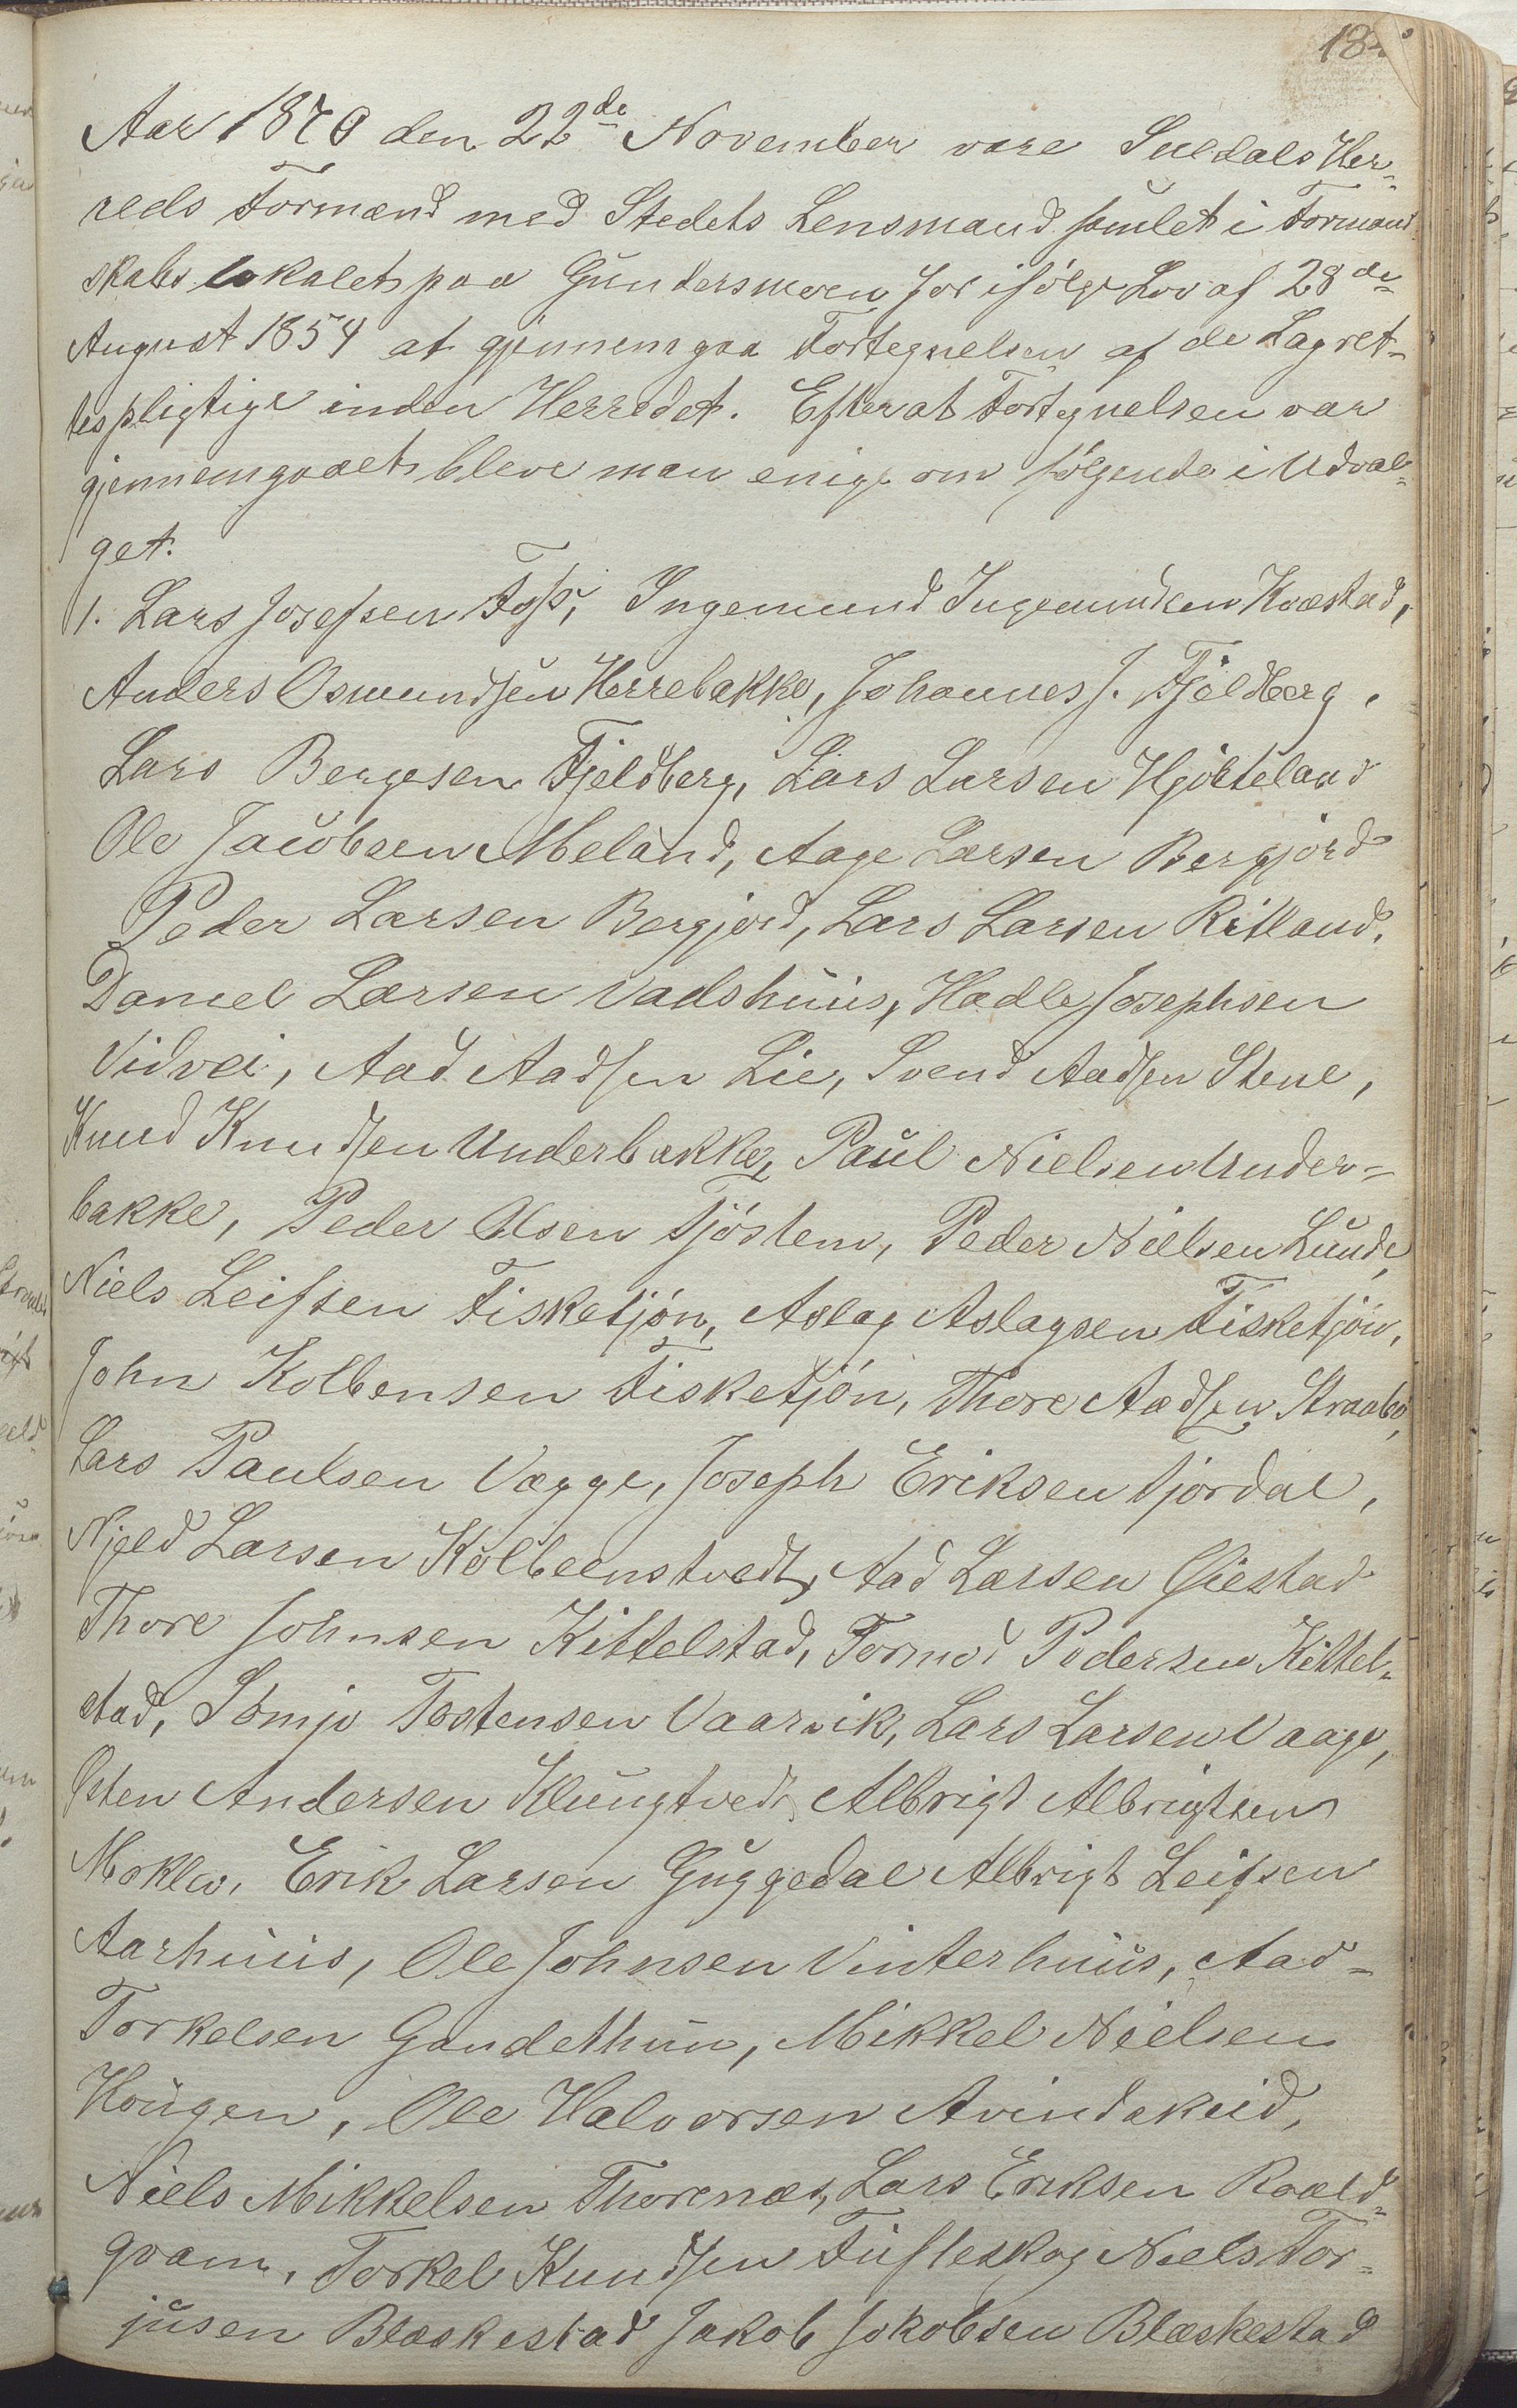 Aar 1870 den 22de November vare Suldals Her-
reds Formænd med Stedets Lensmand samlet i Formand
skabs lokalet paa Gundersmoen for ifølge Lov af 28de
August 1854 at gjennemgaa Fortegnelsen af de Lagret-
tespligtige inden Herredet. Efterat Fortegnelsen var
gjennemgaaet bleve man enige om følgende i Udval-
get.
1. Lars Josefsen Foss, Ingemund Ingemundsen Kvæstad,
Anders Osmundsen Herrebakke, Johannes J. Fjeldberg,
Lars Bergesen Fjeldberg, Lars Larsen Hjørteland
Ole Jacobsen Meland, Aage Larsen Bergjord
Peder Larsen Bergjord, Lars Larsen Ritland,
Daniel Larsen Vadshuus, Hadle Josephsen
Vidvei, Aad Aadsen Lie, Svend Aadsen Stene,
Knud Knudsen Underbakke, Paul Nielsen Under-
bakke, Peder Olsen Tjøstem, Peder Nielsen Lunde,
Niels Leifsen Fisketjøn, Aslag Aslagsen Fisketjøn,
John Kolbensen Fisketjøn, Thore Aadsen Straabø,
Lars Paulsen Vægge, Joseph Eriksen Fjordal,
Njeld Larsen Kolbeenstvedt, Aad Larsen Qiestad
Thore Johnsen Kittelstad, Tormod Pedersen Kittel-
stad, Sømje Tostensen Vaarvik, Lars Larsen Vaage,
Østen Andersen Klungtvedt, Albrigt Albrigtsen
Mokleiv, Erik Larsen Guggedal Albrigt Leifsen
Aarhuus, Ole Johnsen Vinterhuus, Aad-
Torkelsen Gaudethun, Mikkel Nielsen
Hougen, Ole Halvorsen Avindskeid,
Niels Mikkelsen Thorenæs, Lars Eriksen Roald-
qvam, Torkel Knudsen Tufteskog Niels Tor-
jusen Bleskestad Jakob Jokobsen Bleskestad